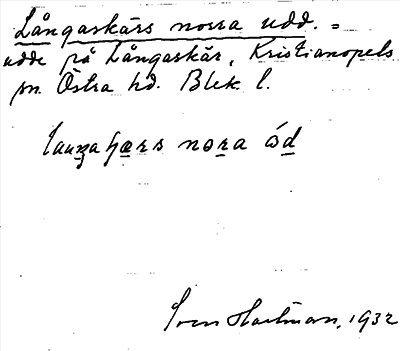 Långaskärs norra udd. =
udde på Långaskär, Kristianopels
sn Östra hd. Blek. l.
nora
Sven Hartman, 1932